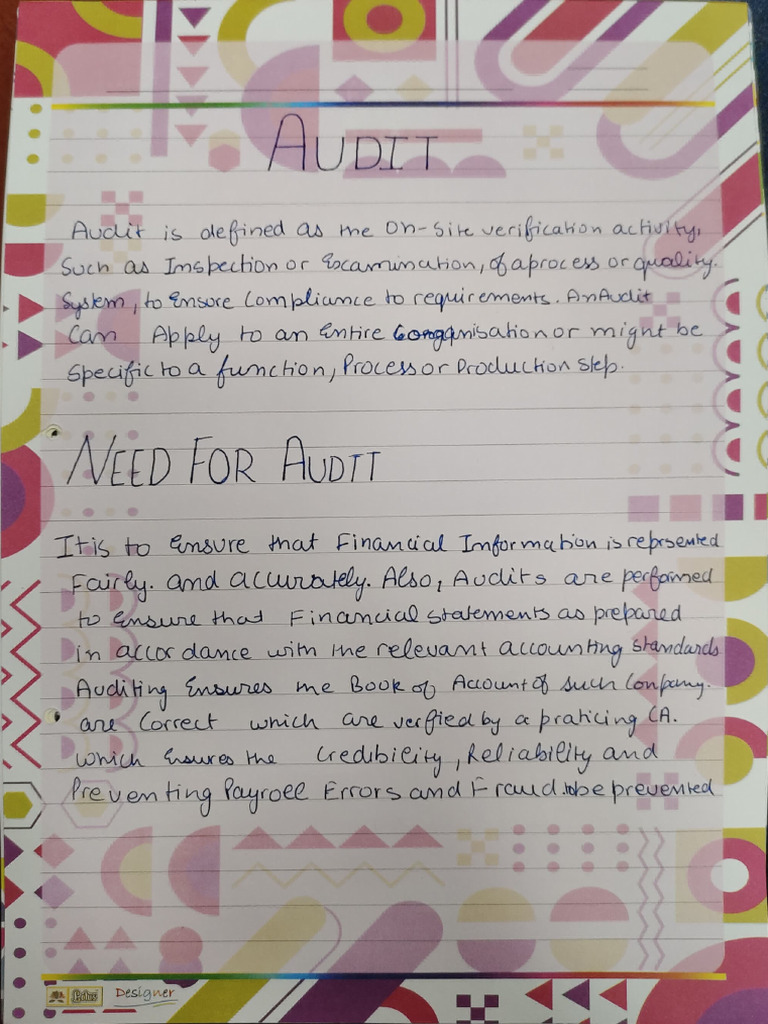 AUDIT
Audit is defined as the On-Site verification activity,
Such as Inspection or Excamination, of a process or quality.
System, to Ensure Compliance to requirements. An Audit
Can Apply to an Entire organisation or might be
Specific to a function, Process or Production step.
NEED FOR AUDIT
It is to Ensure that Financial Information is reprsented
Fairly. and accurately. Also, Audits are performed
to Ensure that Financial statements as prepared
in accordance with the relevant accounting standards
Auditing Ensures the Book of Account of such Company.
are Correct which are verfied by a praticing CA.
which Ensures the Credibility, Reliability and
Preventing Payroll Errors and Fraud. to be prevented
Designer